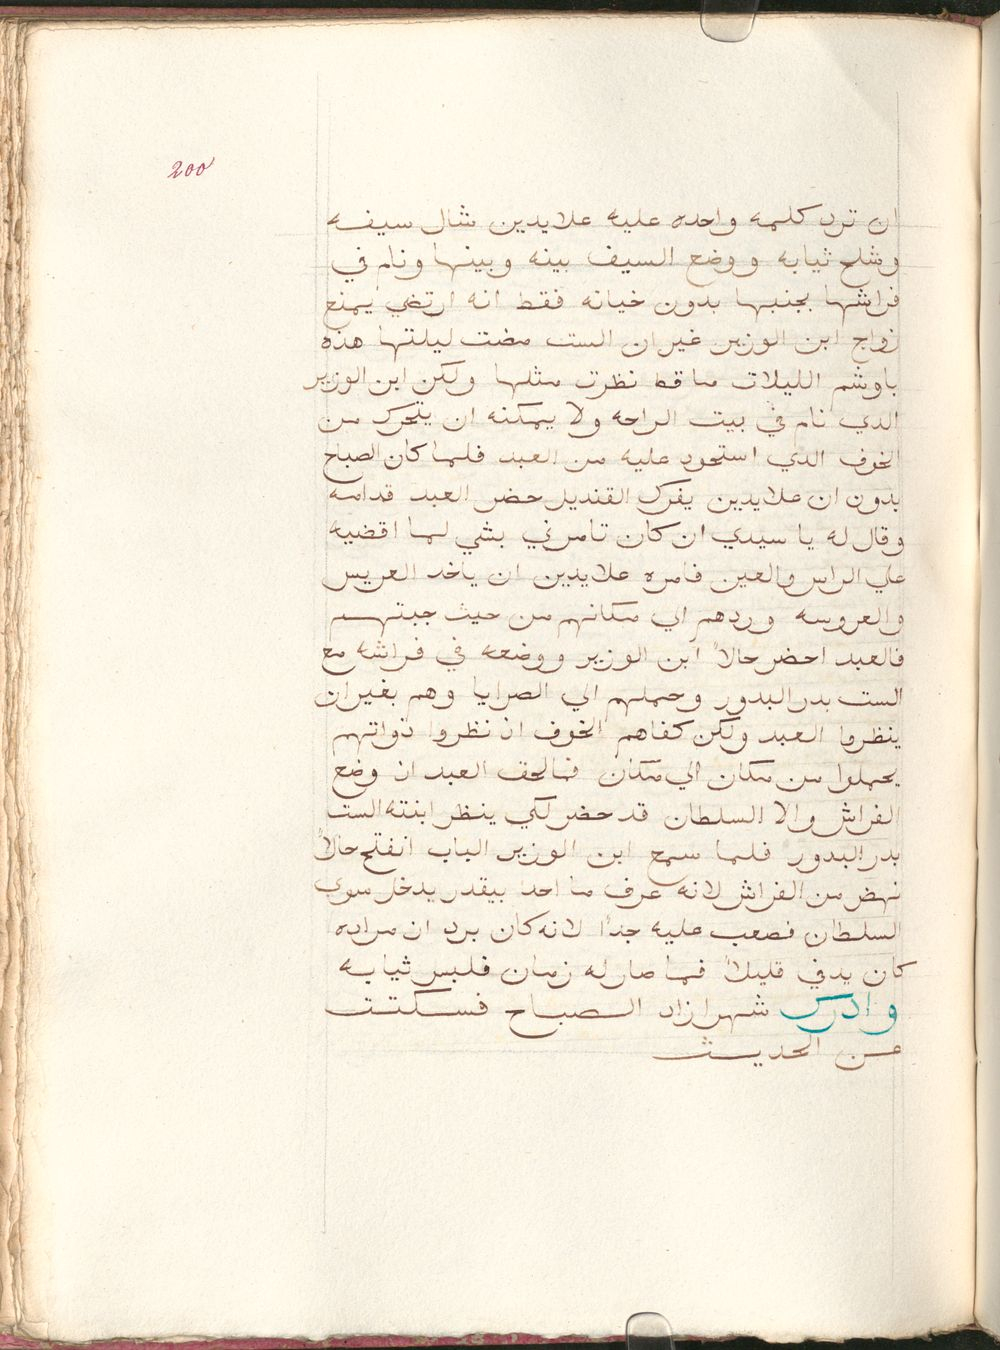 200
ان ترد كلمه واحده عليه علايدين شال سيفه
وشلح ثيابه ووضع السيف بينه وبينها ونام في
فراشها بجنبها بدون خيانه فقط انه ارتضي يمنع
زواج ابن الوزير غير ان الست مضت ليلتها هذه
باوشم الليلات ما قط نظرت مثلها ولكن ابن الوزير
الدي نام في بيت الراحه ولا يمكنه ان يتحرك من
الخوف الدي استحود عليه من العبد فلما كان الصباح
بدون ان علايدين يفرك القنديل حضر العبد قدامه
وقال له يا سيدي ان كان تامرني بشي لما اقضيه
علي الراس والعين فامره علايدين ان ياخد العريس
والعروسه وردهم الي مكانهم من حيث جبتهم
فالعبد احضر حالاً ابن الوزير ووضعه في فراشه مع
الست بدر البدور وحملهم الي الصرايا وهم بغير ان
ينظروا العبد ولكن كفاهم الخوف ان نظروا ذواتهم
يحملوا من مكان الي مكان فما لحق العبد ان وضع
الفراش والا السلطان قد حضر لكي ينظر ابنته الست
بدر البدور فلما سمع ابن الوزير الباب انفتح حالاً
نهض من الفراش لانه عرف ما احد بيقدر يدخل سوي
السلطان فصعب عليه جداً لانه كان برد ان مراده
كان يدفي قليلاً فما صار له زمان فلبس ثيابه
وادرك شهرازاد الصباح فسكتت
عن الحديث